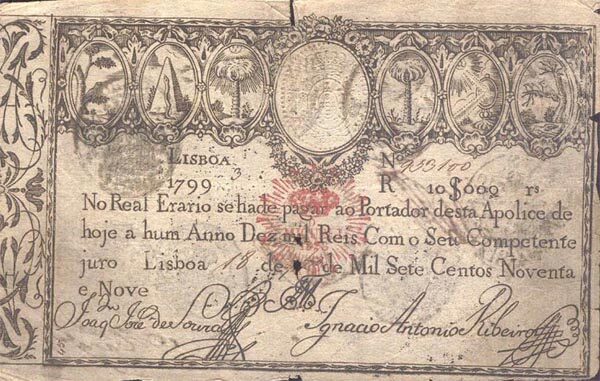 LISBOA
Nº 133100
1799
R 10$000 rs
No Real Erario se hade pagar ao Portador desta Apolice de
hoje a hum Anno Dez mil Reis Com o Seu Competente
juro Lisboa 18 de de Mil Sete Centos Noventa
e Nove
Joaq. José de Souza
Ignacio Antonio Ribeiro